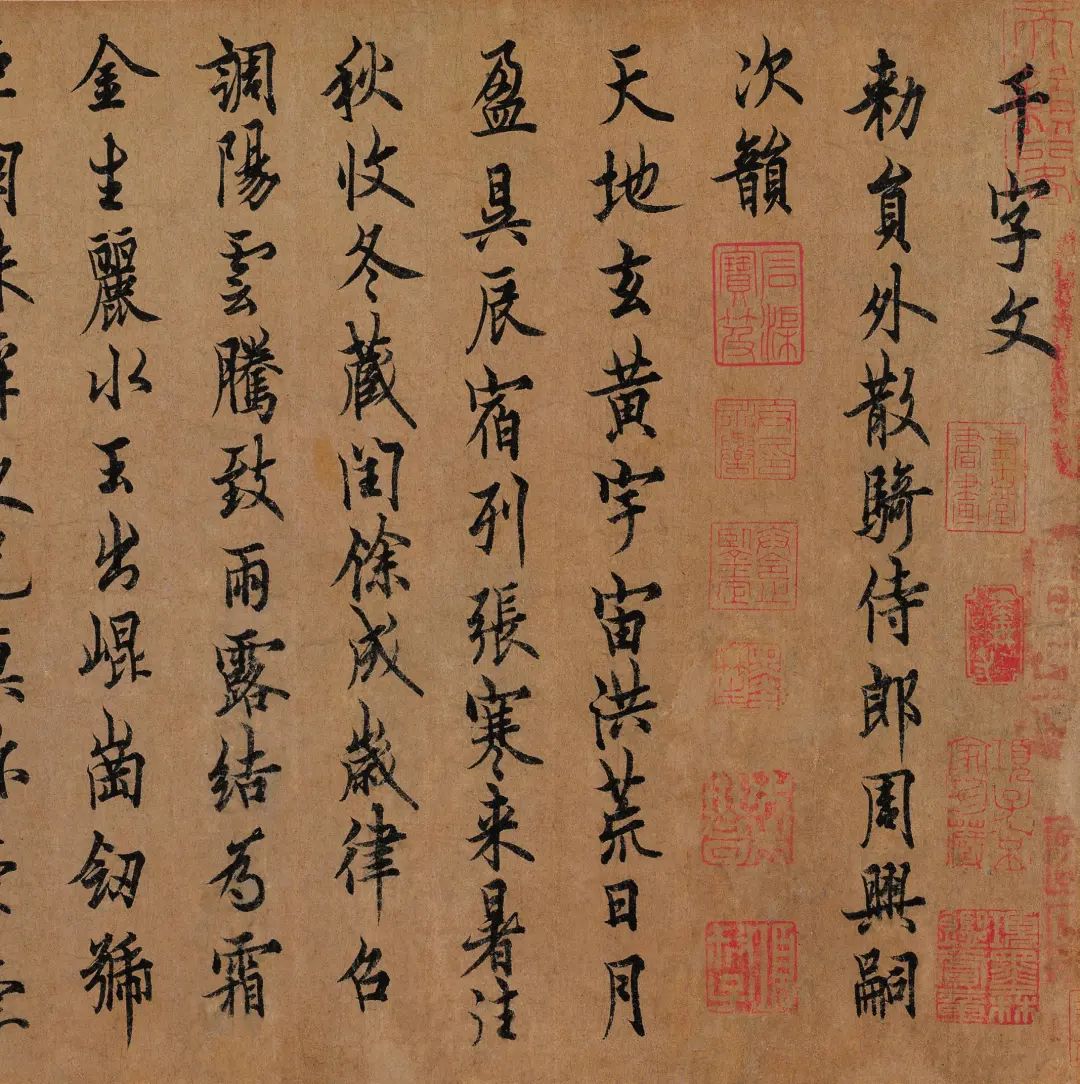 千字文
勑員外散騎侍郎周興嗣
次韻
石渠寶笈
項子京家珍藏
天地玄黃宇宙洪荒日月
盈昃辰宿列張寒来暑往
秋收冬藏閏餘成歲律召
調陽雲騰致雨露結為霜
金生麗水玉出崐崗釼號